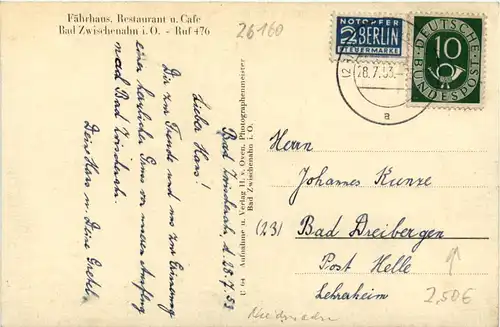 Fährhaus, Restaurant u. Cafe
Bad Zwischenahn i. O. - Ruf 476
26160
NOTOPFER
2 BERLIN
STEUERMARKE
DEUTSCHE
BUNDESPOST
10
28.7.53.
a
Bad Zwischenah, d. 28.7.53
Lieber Hans!
Dir zur Freude und uns zur Erinnerung
einen herzlichen Gruss von unserem Ausflug
nach Bad Zwischenah.
Dein Hans u. Deine Gretel
C 64 Aufnahme u. Verlag H. v. Oven, Photographenmeister
Bad Zwischenahn i. O.
Herrn
Johannes Kunze
(23) Bad Dreibergen
Post Helle
Lehraheim
2,50€